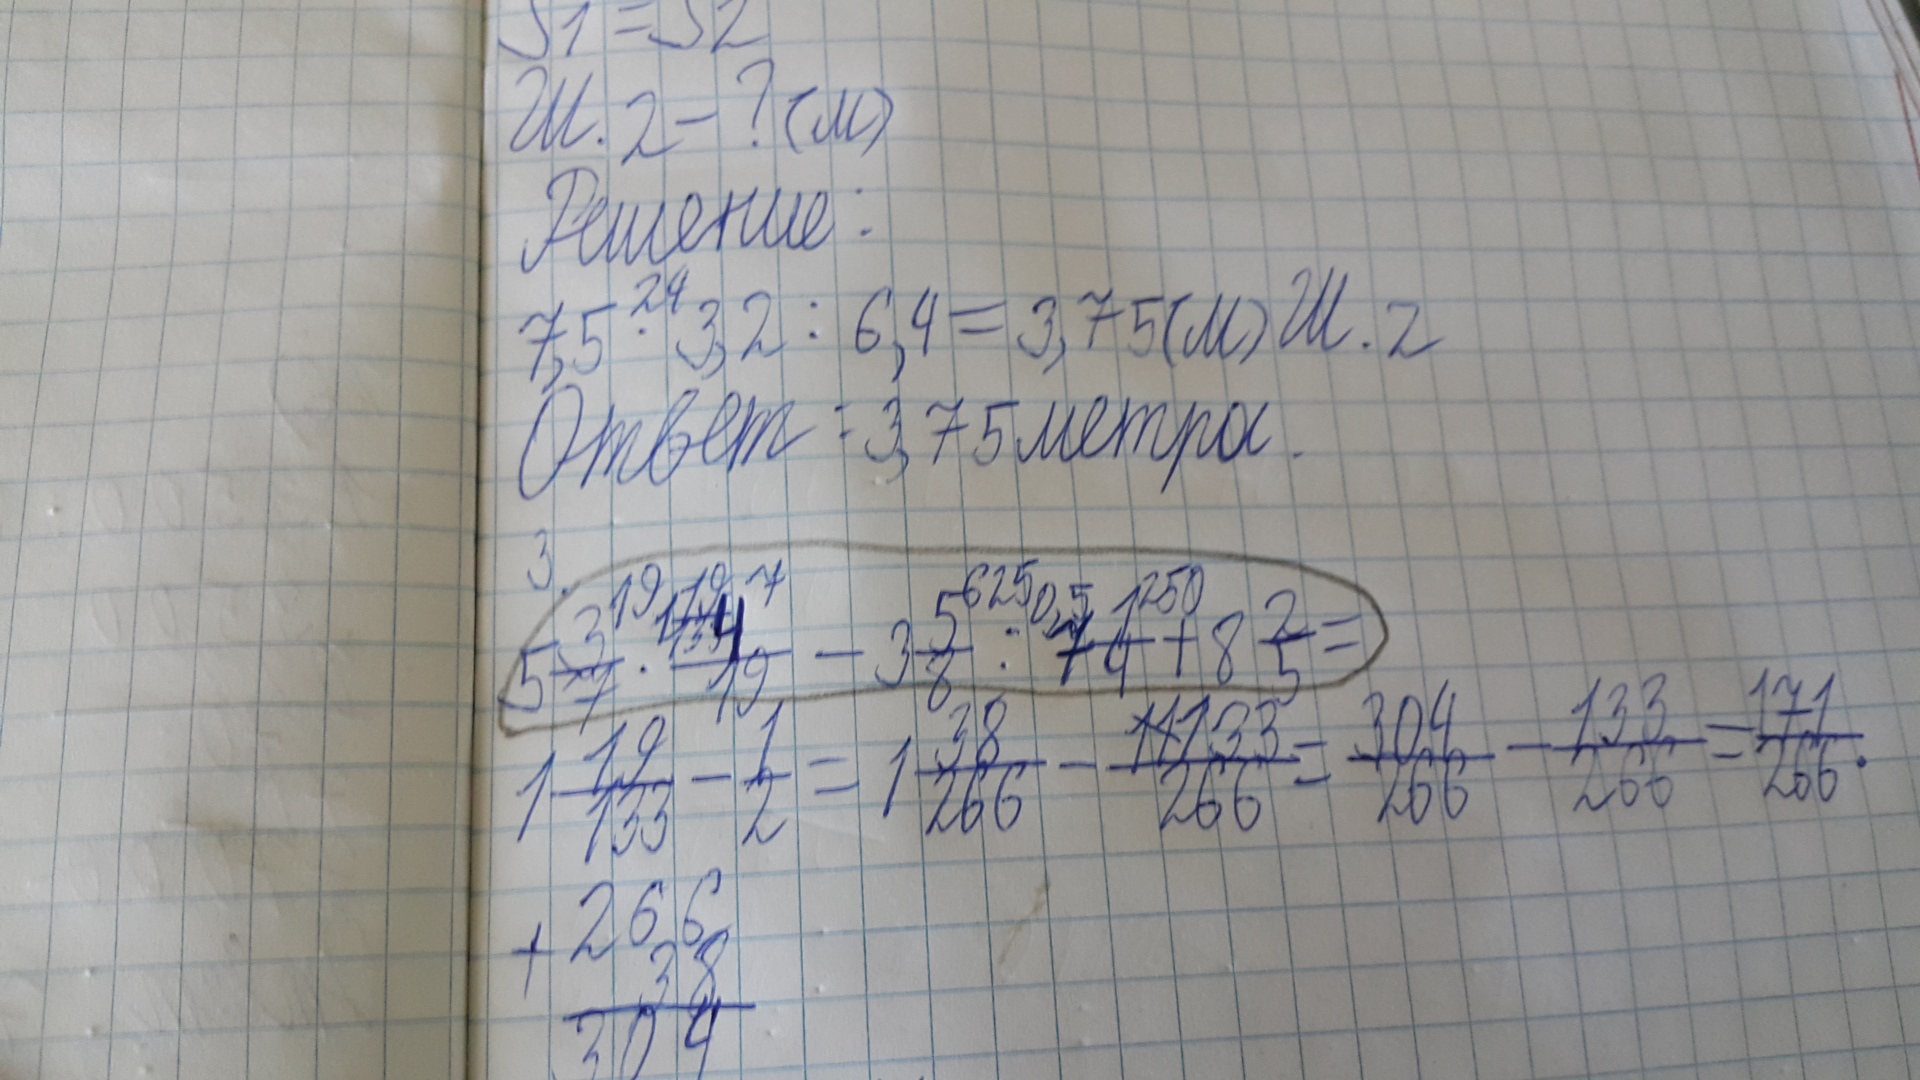 S1=S2
Ш.2-?(м)
Решение:
24
7,5·3,2:6,4=3,75(м)Ш.2
Ответ:3,75метра.
3.
19 7 625 0,5 250
5 3/7 · 4/19 - 3 5/8 : 7 1/4 + 8 2/5 =
1 19/133 - 1/2 = 1 38/266 - 133/266 = 304/266 - 133/266 = 171/266.
+ 266
38
304